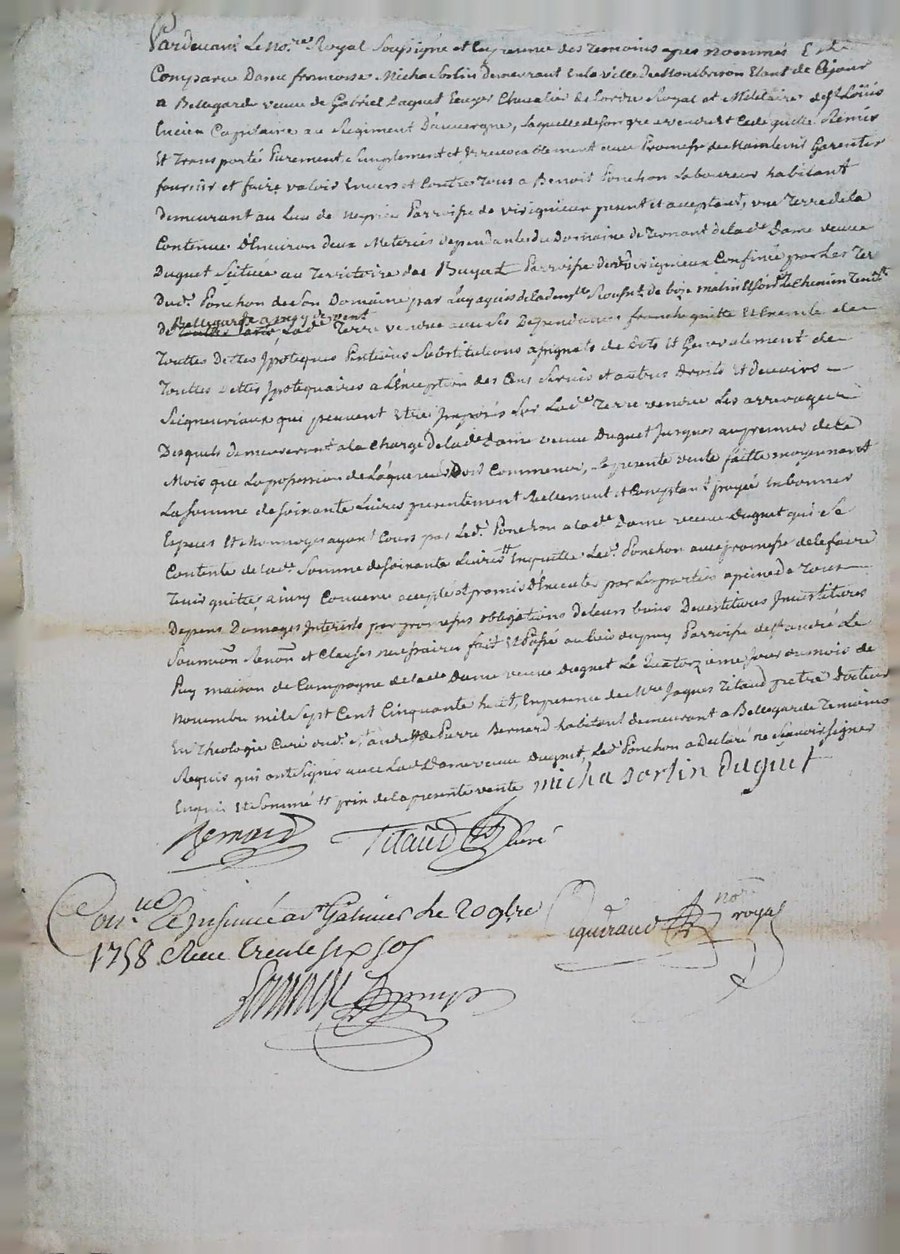 Pardevant Le no.re Royal Soussigné et En presence des temoins apres nommés Est
Comparue Dame francoise Micha Sorlin demeurant En la ville de Monbrison Etant de Cejour
a Bellegarde veuve de Gabriel Duguet Ecuyer Chevalier de Lordre Royal et Militaire de St Loüis
Encien Capitaine au Regiment Dauvergne, Laquelle de son gre a vendu et Cede quitte Remis
Et transporté Purement Simplement et Irrevocablement avec Promesse de Maintenir Garentir
fournir et faire valoir Envers et Contre tous a Benoit Ponchon Laboureur habitant
demeurant au Lieu de Parroisse de virignieux present et acceptant, une Terre de la
Contenue D'Environ deux Meterées dependante du Domaine de de lade Dame veuve
Duguet Scituée au Territoire des Parroisse de virignieux Confinée par Les Ter
Dud. Ponchon de Son Domaine par de bize matin et soir Le Chemin
de Bellegarde a midy Lade Terre vendue avec Ses Dependances franche quitte Et Exemte de
Touttes Dettes Ipoteques Pentions Substitutions de Dots et Generalement de
Touttes Dettes Ipotequaires a L'Exception des Cens Servis et autres Droits Et Devoirs
Seigneuriaux qui peuvent Etre Imposés Sur Lade Terre vendue Les arrerages
Desquels demeureront a la Charge de lade Dame veuve Duguet Jusques au premier de Ce
Mois que La possession de L'aquereur Doit Commencer, La presente vente faitte moyennant
La Somme de Soixante Livres presentement Reellement et Comptant payée En bonnes
Especes Et Monnoyes ayant Cours par Led. Ponchon a lade Dame veuve Duguet qui Se
Contente de lade Somme de Soixante Livres En quitte Led. Ponchon avec promesse de le faire
Tenir quitte, ainsy Convenu accepté et promis D'Executer par Les parties a peine de Tous
Depens Damages Interests par obligations de leurs biens Devestitures Investitures
Soumion Renon et Clauses necessaires fait Et Passé au Lieu du puy Parroisse de St andré Le
Puy maison de Campagne de lade Dame veuve Duguet Le Quatorzieme Jour du mois de
Novembre mil Sept Cent Cinquante huit, En presence de Mre Jaques Titaud pretre Docteur
En Theologie Curé dud. St andré et de Pierre Bernard habitant demeurant a Bellegarde Temoins
Requis qui ont Signé avec Lade Dame veuve Duguet, Led. Ponchon a Declaré ne Sçavoir Signer
Enquis Et Sommé et prix de la presente vente micha sorlin duguet
Bernard Titaud Curé
Con.lle Et Insinué a St Galmier Le 20 9bre
1758 Receu trente six sols
Siguiraud no.re royal